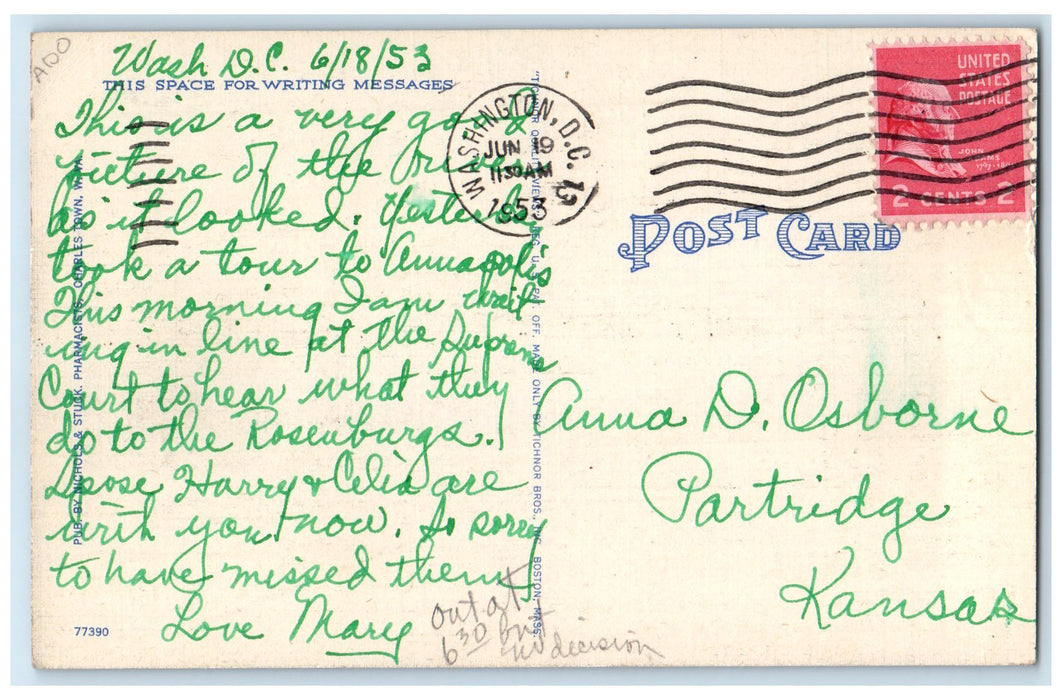 ADO
Wash D.C. 6/18/53
THIS SPACE FOR WRITING MESSAGES
This is a very good
picture of the
as it looked. Yesterday
took a tour to Annapolis
This morning I am wait
ing in line at the Supreme
Court to hear what they
do to the Rosenburgs. I
spose Harry & Celia are
with you now. So sorry
to have missed them,
Love Mary
out at
6 30 but
no decision
77390
PUB. BY NICHOLS & STUCK, PHARMACISTS, CHARLES TOWN, W. VA.
"TICHNOR QUALITY VIEWS," REG. U. S. PAT. OFF. MADE ONLY BY TICHNOR BROS., INC. BOSTON, MASS.
WASHINGTON, D.C. 13
JUN 19
11 30 AM
1953
UNITED
STATES
POSTAGE
JOHN
ADAMS
2 CENTS 2
POST CARD
Anna D. Osborne
Partridge
Kansas